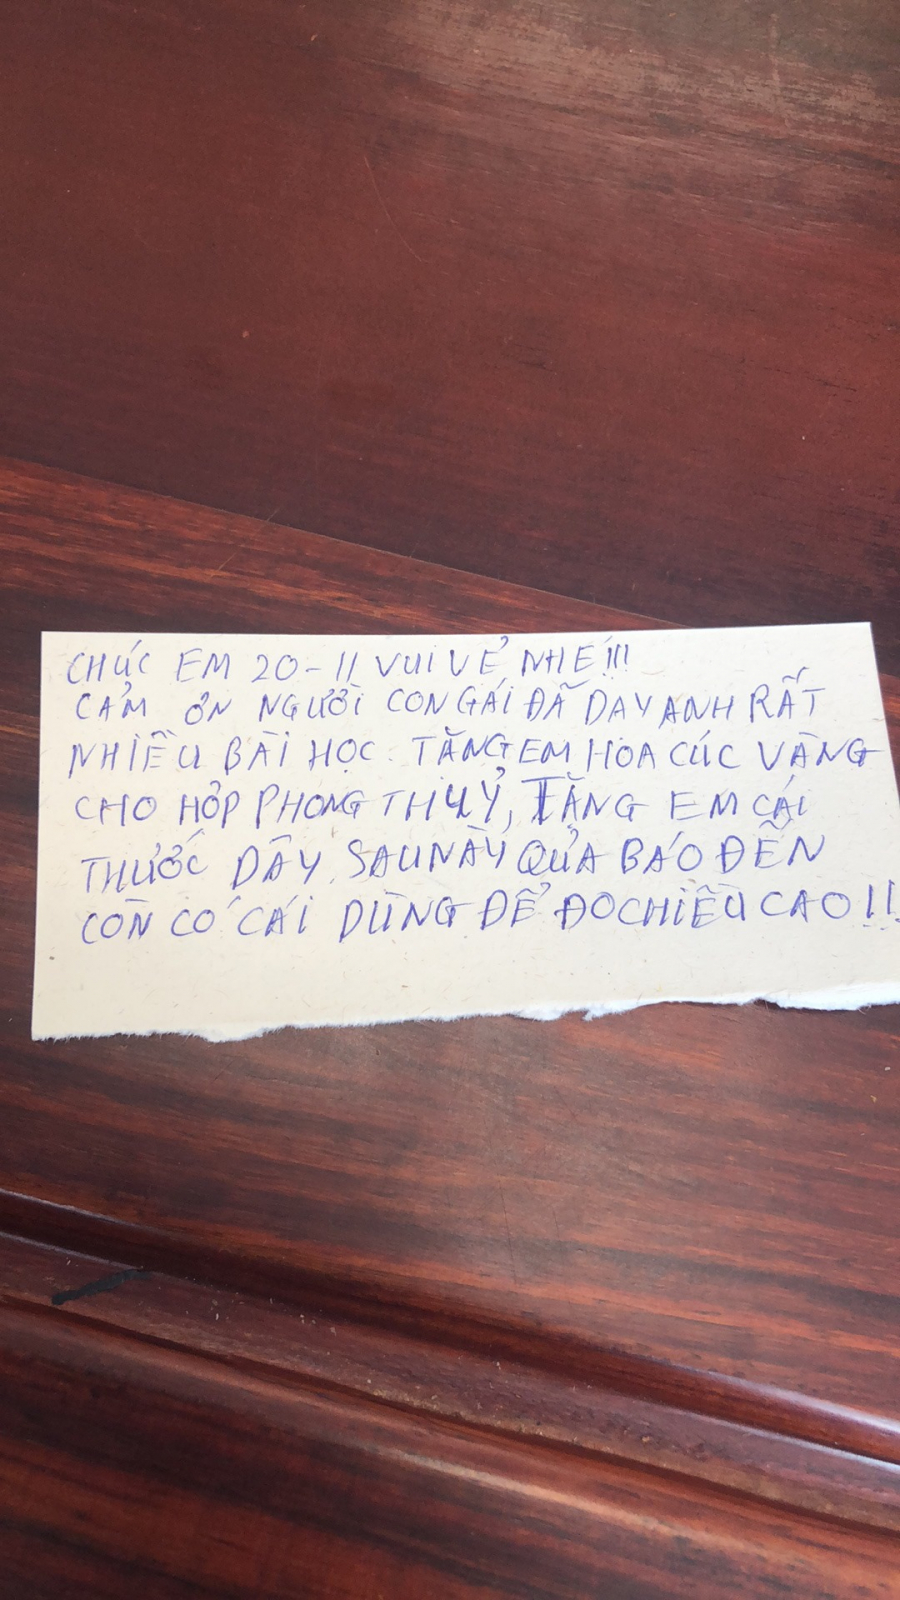 CHÚC EM 20-11 VUI VẺ NHÉ!!!
CẢM ƠN NGƯỜI CON GÁI ĐÃ DAY ANH RẤT
NHIỀU BÀI HỌC. TẶNG EM HOA CÚC VÀNG
CHO HỢP PHONG THUỶ, TẶNG EM CÁI
THƯỚC DÂY, SAU NÀY QUẢ BÁO ĐẾN
CÒN CÓ CÁI DÙNG ĐỂ ĐO CHIỀU CAO!!